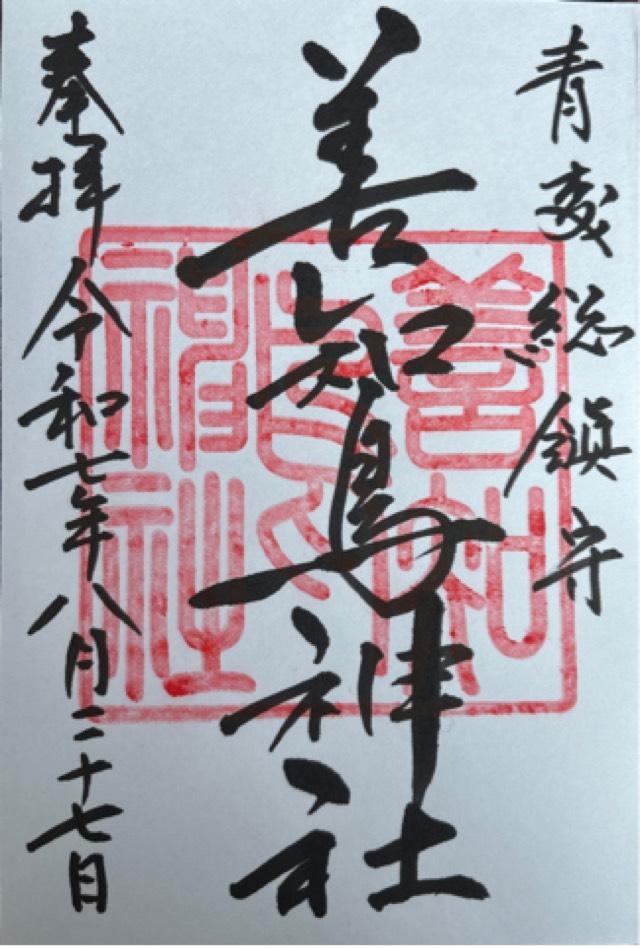 青森総鎮守
善知鳥神社
奉拝 令和七年八月二十七日
善知鳥神社